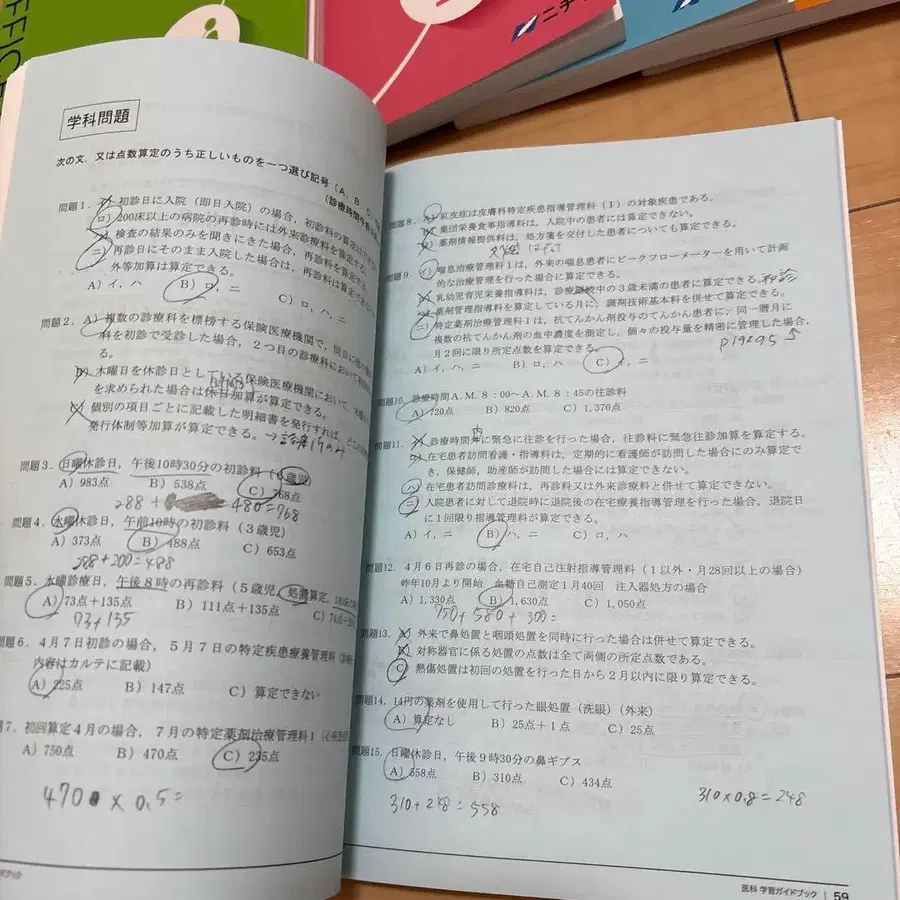 OFFICE
ニチイ
学科問題
次の文，又は点数算定のうち正しいものを一つ選び記号（A，B，
（診療時間
問題1．イ）初診日に入院（即日入院）の場合，初診料の算定は
ロ）200床以上の病院の再診時には外来診療料を算定する。
ハ）検査の結果のみを聞きにきた場合，再診料を算定する。
ニ）再診日にそのまま入院した場合は，再診料は算定できない
外等加算は算定できる。
A）イ，ハ　B）ロ，ニ　C）ロ，ハ，ニ
問題2．A）複数の診療科を標榜する保険医療機関で，同日に他の
科を初診で受診した場合，2つ目の診療科において初診
る。
B）木曜日を休診日としている保険医療機関において，
を求められた場合は休日加算が算定できる。
C）個別の項目ごとに記載した明細書を発行すれば，
発行体制等加算が算定できる。→診療所のみ
問題3．日曜休診日，午後10時30分の初診料（6歳児）
A）983点　B）538点　C）768点
288+ 480=768
問題4．水曜休診日，午前10時の初診料（3歳児）
A）373点　B）488点　C）653点
288+200=488
問題5．水曜診療日，午後8時の再診料（5歳児，処置算定，
A）73点＋135点　B）111点＋135点　C）74点＋
73+135
問題6．4月7日初診の場合，5月7日の特定疾患療養管理料（診療
内容はカルテに記載）
A）225点　B）147点　C）算定できない
7．初回算定4月の場合，7月の特定薬剤治療管理料1（心
A）750点　B）470点　C）235点
470 × 0.5=
問題8．A）紅皮症は皮膚科特定疾患指導管理料（1）の対象疾患である。
B）集団栄養食事指導料は，入院中の患者には算定できない。
C）薬剤情報提供料は，処方箋を交付した患者についても算定できる。
問題9．イ）喘息治療管理料1は，外来の喘息患者にピークフローメーターを用いて計画
的な治療管理を行った場合に算定できる。
ロ）乳幼児育児栄養指導料は，診療継続中の3歳未満の患者に算定できる。初診
ハ）薬剤管理指導料を算定している月に，調剤技術基本料を併せて算定できる。
ニ）特定薬剤治療管理料1は，抗てんかん剤投与のてんかん患者に，同一暦月に
複数の抗てんかん剤の血中濃度を測定し，個々の投与量を精密に管理した場合，
月2回に限り所定点数を算定できる。
A）イ，ハ，ニ　B）ロ，ハ　C）イ，ニ
問題10．診療時間A.M.8：00～A.M.8：45の往診料
A）720点　B）820点　C）1,370点
内
問題11．イ）診療時間外に緊急に往診を行った場合，往診料に緊急往診加算を算定する。
ロ）在宅患者訪問看護・指導料は，定期的に看護師が訪問した場合にのみ算定で
き，保健師，助産師が訪問した場合には算定できない。
ハ）在宅患者訪問診療料は，再診料又は外来診療料と併せて算定できない。
ニ）入院患者に対して退院時に退院後の在宅療養指導管理を行った場合，退院日
に1回限り指導管理料が算定できる。
A）イ，ニ　B）ハ，ニ　C）ロ，ハ
問題12．4月6日再診の場合，在宅自己注射指導管理料（1以外・月28回以上の場合）
昨年10月より開始　血糖自己測定1月40回　注入器処方の場合
A）1,330点　B）1,630点　C）1,050点
750+580+300=
問題13．A）外来で鼻処置と咽頭処置を同時に行った場合は併せて算定できる。
B）対称器官に係る処置の点数は全て両側の所定点数である。
C）熱傷処置は初回の処置を行った日から2月以内に限り算定できる。
問題14．14円の薬剤を使用して行った眼処置（洗眼）（外来）
A）算定なし　B）25点＋1点　C）25点
問題15．日曜休診日，午後9時30分の鼻ギプス
A）558点　B）310点　C）434点
310+248=558
310×0.8=248
ドブック
医科 学習ガイドブック　59